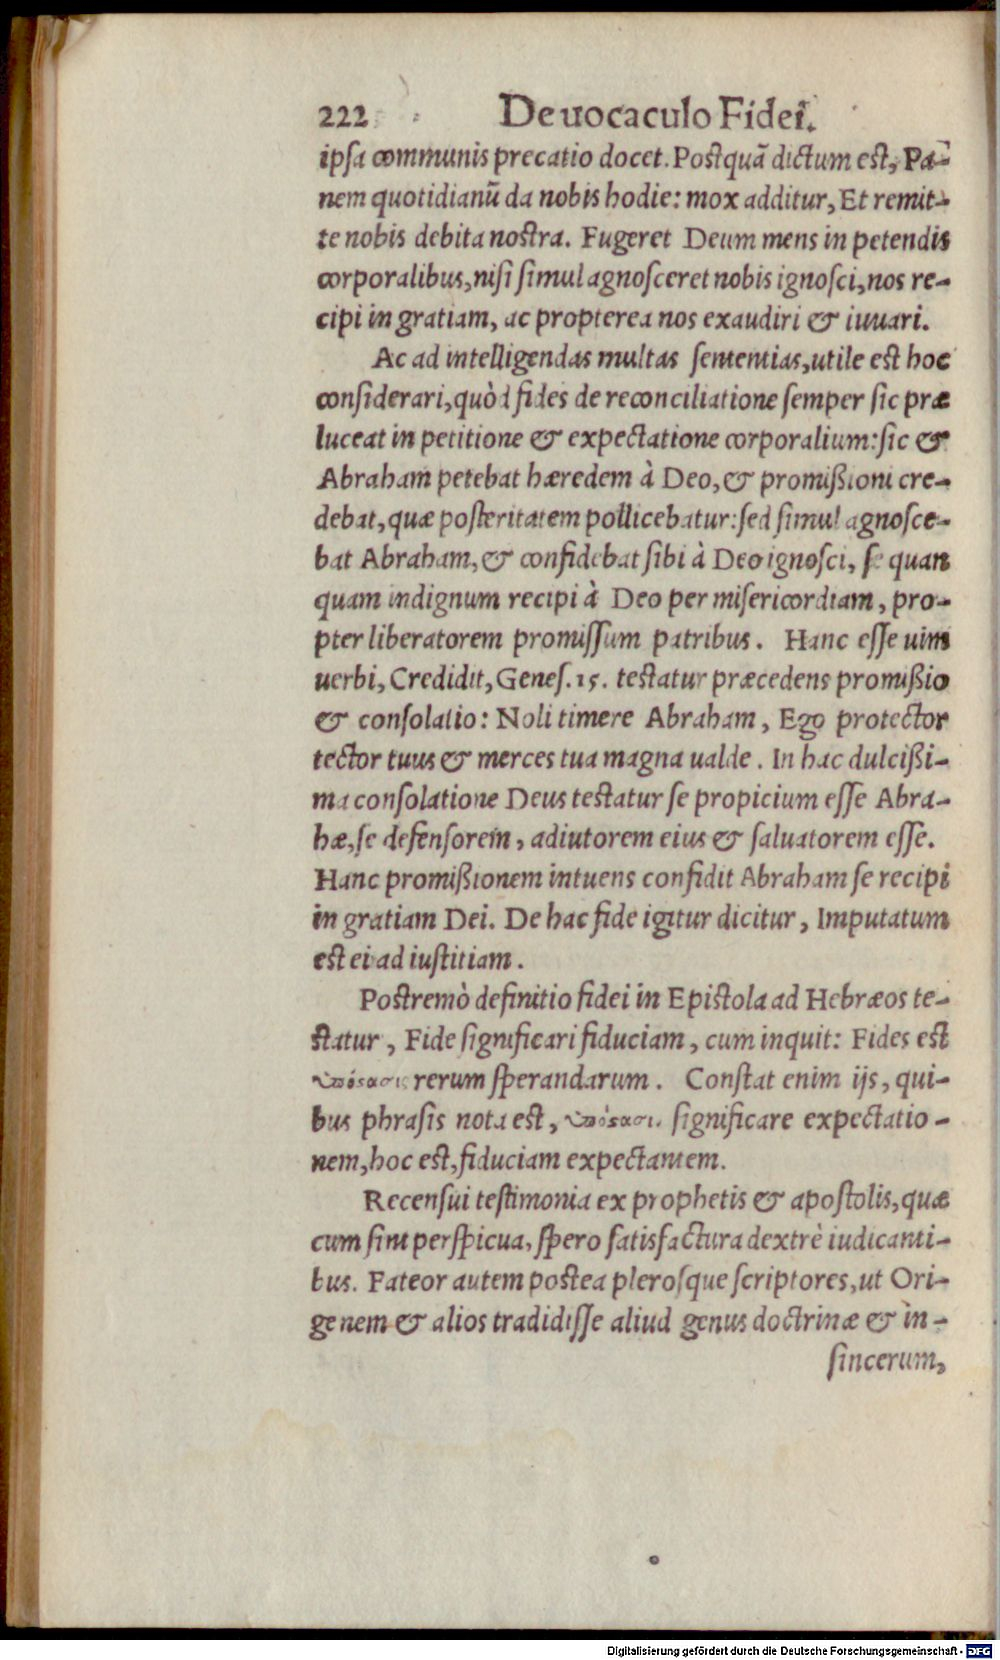 222 De uocaculo Fidei.
ipsa communis precatio docet. Postquã dictum est, Pa-
nem quotidianũ da nobis hodie: mox additur, Et remit-
te nobis debita nostra. Fugeret Deum mens in petendis
corporalibus, nisi simul agnosceret nobis ignosci, nos re-
cipi in gratiam, ac propterea nos exaudiri & iuuari.
Ac ad intelligendas multas sententias, utile est hoc
considerari, quòd fides de reconciliatione semper sic præ
luceat in petitione & expectatione corporalium: sic &
Abraham petebat hæredem à Deo, & promißioni cre-
debat, quæ posteritatem pollicebatur: sed simul agnosce-
bat Abraham, & confidebat sibi à Deo ignosci, se quan
quam indignum recipi à Deo per misericordiam, pro-
pter liberatorem promissum patribus. Hanc esse uim
uerbi, Credidit, Genes. 15. testatur præcedens promißio
& consolatio: Noli timere Abraham, Ego protector
tector tuus & merces tua magna ualde. In hac dulcißi-
ma consolatione Deus testatur se propicium esse Abra-
hæ, se defensorem, adiutorem eius & saluatorem esse.
Hanc promißionem intuens confidit Abraham se recipi
in gratiam Dei. De hac fide igitur dicitur, Imputatum
est ei ad iustitiam.
Postremò definitio fidei in Epistola ad Hebræos te-
statur, Fide significari fiduciam, cum inquit: Fides est
rerum sperandarum. Constat enim ijs, qui-
bus phrasis nota est, significare expectatio-
nem, hoc est, fiduciam expectantem.
Recensui testimonia ex prophetis & apostolis, quæ
cum sint perspicua, spero satisfactura dextrè iudicanti-
bus. Fateor autem postea plerosque scriptores, ut Ori-
genem & alios tradidisse aliud genus doctrinæ & in-
sincerum,
Digitalisierung gefördert durch die Deutsche Forschungsgemeinschaft - DFG